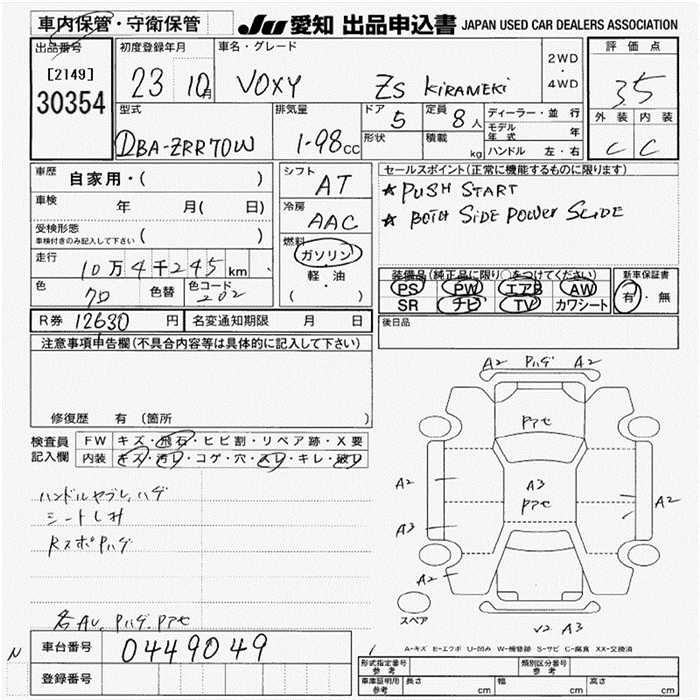 車内保管・守衛保管 JU 愛知 出品申込書 JAPAN USED CAR DEALERS ASSOCIATION
出品番号 初度登録年月 車名・グレード 評価点
[2149] 30354
23 10月 VOXY ZS KIRAMEKI 2WD・4WD 3.5
型式 排気量 ドア 定員 ディーラー・並行 外装 内装
DBA-ZRR70W 1-98cc 5 8人 モデル年式 年 C C
形状 積載 kg ハンドル 左・右
車歴 自家用・( ) シフト AT セールスポイント(正常に機能するものに限ります)
車検 年 月( 日) 冷房 AAC ★PUSH START
受検形態 車検付きのみ記入して下さい ( ) ★BOTH SIDE POWER SLIDE
走行 10万4千245km 燃料 ガソリン・軽油 ( )
装備品(純正品に限り○をつけてください) 新車保証書
PS PW エアB AW 有・無
SR ナビ TV カワシート
色 70 色替 色コード 202
R券 12630円 名変通知期限 月 日 後日品
注意事項申告欄(不具合内容等は具体的に記入して下さい)
修復歴 有(箇所 )
検査員記入欄 FW キズ・飛石・ヒビ割・リペア跡・X要
内装 キズ・汚レ・コゲ・穴・スレ・キレ・破レ
A2 Pハゲ A2
Pアセ
A2 A3 Pアセ A2
A3
A2
スペア
√2 A3
ハンドルヤブレ,ハゲ
シートしみ
RスポPハゲ
各AU,Pハゲ,Pアセ
A-キズ E-エクボ U-凹み W-補修跡 S-サビ C-腐食 XX-交換済
N 車台番号 0449049
登録番号
形式指定番号 参考 類別区分番号 参考
車庫証明用 参考 長さ cm 幅 cm 高さ cm